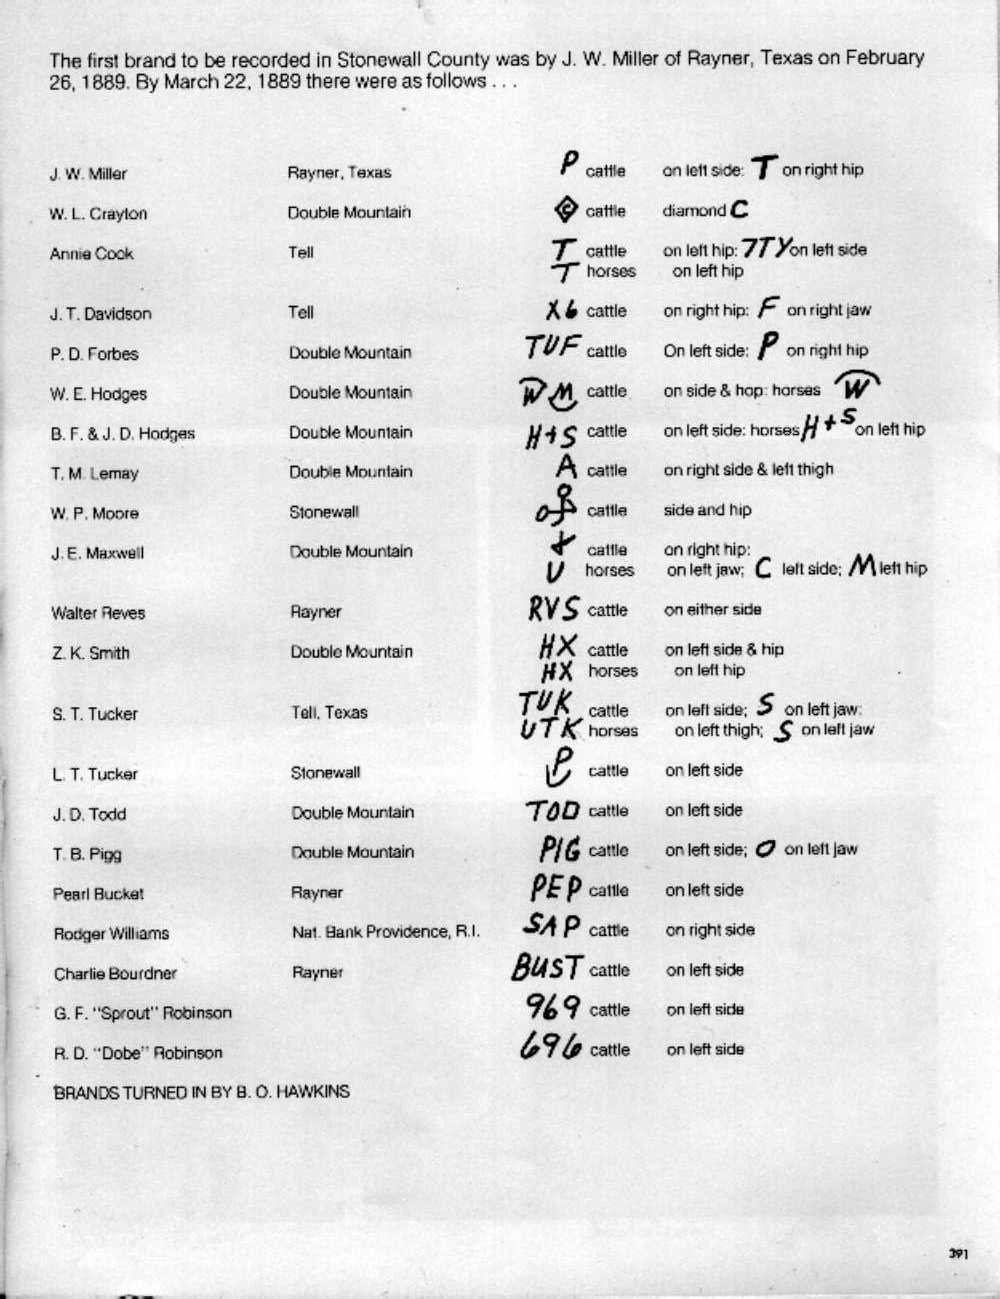 The first brand to be recorded in Stonewall County was by J. W. Miller of Rayner, Texas on February
26, 1889. By March 22, 1889 there were as follows . . .
J. W. Miller Rayner, Texas P cattle on left side: T on right hip
W. L. Crayton Double Mountain C cattle diamond C
Annie Cook Tell T cattle on left hip: 7TY on left side
T horses on left hip
J. T. Davidson Tell X6 cattle on right hip: F on right jaw
P. D. Forbes Double Mountain TUF cattle On left side: P on right hip
W. E. Hodges Double Mountain W M cattle on side & hop: horses W
B. F. & J. D. Hodges Double Mountain H+S cattle on left side: horses H+S on left hip
T. M. Lemay Double Mountain A cattle on right side & left thigh
W. P. Moore Stonewall cattle side and hip
J. E. Maxwell Double Mountain + cattle on right hip:
U horses on left jaw; C left side; M left hip
Walter Reves Rayner RVS cattle on either side
Z. K. Smith Double Mountain HX cattle on left side & hip
HX horses on left hip
S. T. Tucker Tell, Texas TUK cattle on left side; S on left jaw:
UTK horses on left thigh; S on left jaw
L. T. Tucker Stonewall cattle on left side
J. D. Todd Double Mountain TOD cattle on left side
T. B. Pigg Double Mountain PIG cattle on left side; O on left jaw
Pearl Bucket Rayner PEP cattle on left side
Rodger Williams Nat. Bank Providence, R.I. SAP cattle on right side
Charlie Bourdner Rayner BUST cattle on left side
G. F. "Sprout" Robinson 969 cattle on left side
R. D. "Dobe" Robinson 696 cattle on left side
BRANDS TURNED IN BY B. O. HAWKINS
391